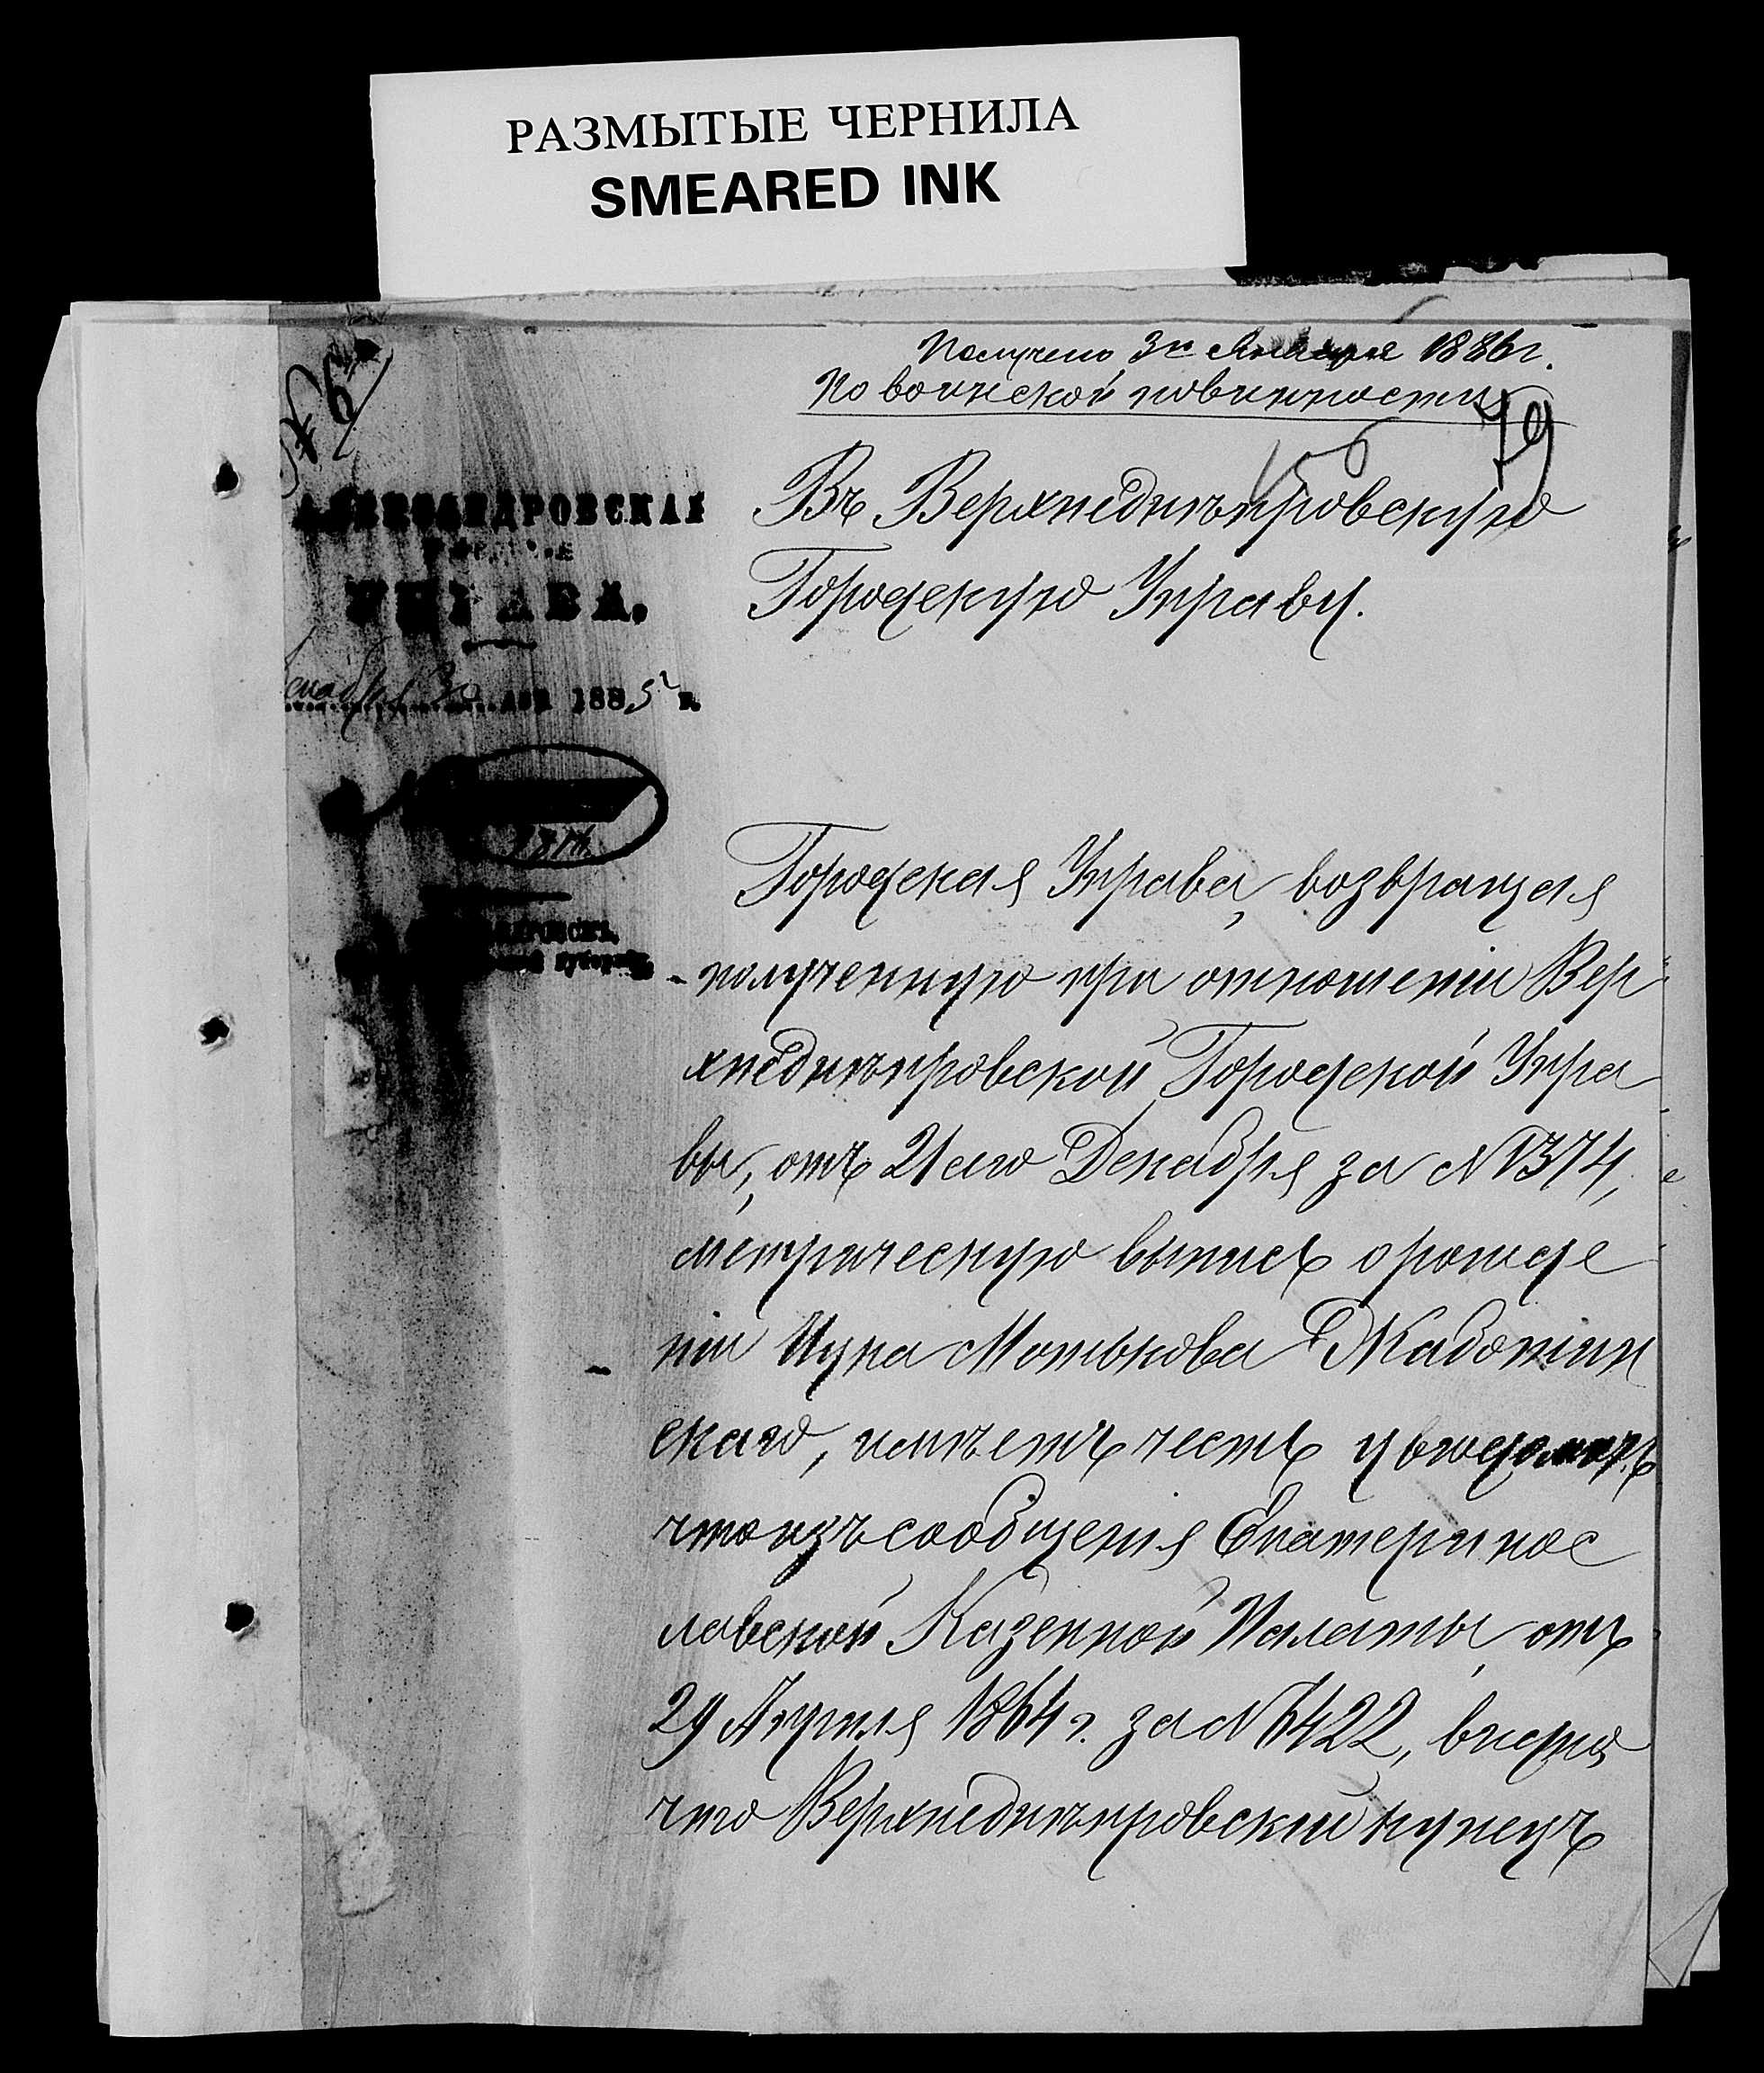 РАЗМЫТЫЕ ЧЕРНИЛА
SMEARED INK
Получено 3го Января 1886 г.
По воинской повинности
№ 6
79
156
АЛЕКСАНДРОВСКАЯ
УПРАВА.
Декабря 30 дня 1885 г.
Въ Верхнеднѣпровскую
Городскую Управу.
Городская Управа, возвращая
полученную при отношеніи Вер
хнеднѣпровской Городской Упра
вы, отъ 21аго Декабря за №1374,
метрическую выпись о рожде
ніи Ицка Мотькова Жаботин
скаго, имѣетъ честь увѣдомить
что изъ сообщенія Екатеринос
лавской Казенной Палаты отъ
29 Апреля 1864 г. за № 6422, видно
что Верхнеднѣпровскій купецъ